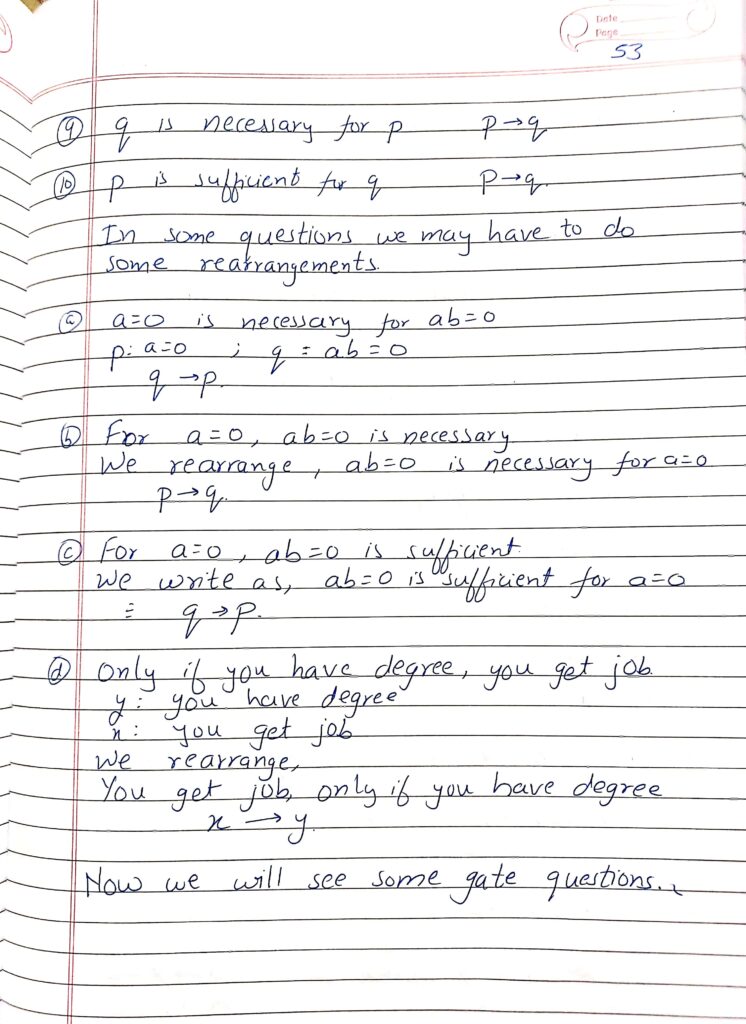 Date
Page
53
⑨ q is necessary for p p→q
⑩ p is sufficient for q p→q.
In some questions we may have to do
some rearrangements.
ⓐ a=0 is necessary for ab=0
p: a=0 ; q = ab=0
q→p.
ⓑ For a=0, ab=0 is necessary
We rearrange, ab=0 is necessary for a=0
p→q.
ⓒ For a=0, ab=0 is sufficient.
We write as, ab=0 is sufficient for a=0
≡ q→p.
ⓓ Only if you have degree, you get job.
y: you have degree
x: you get job
We rearrange,
You get job, only if you have degree
x → y.
Now we will see some gate questions.